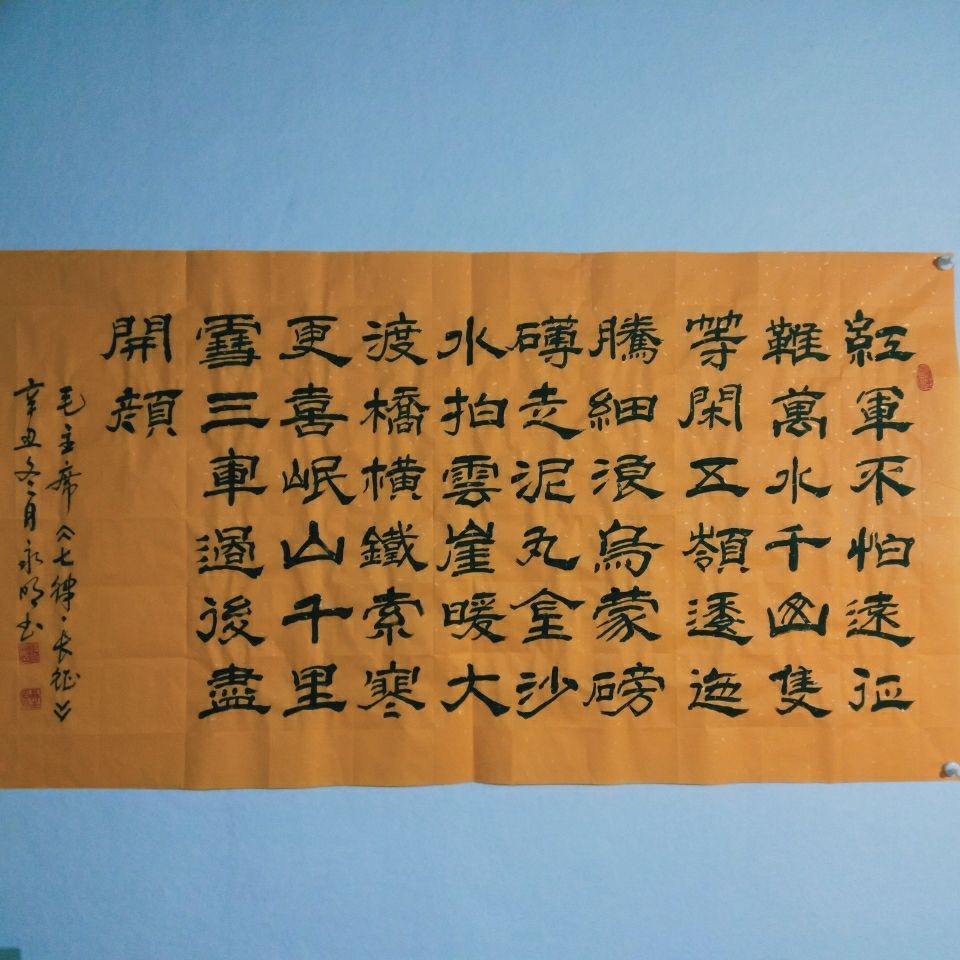 紅軍不怕遠征
難萬水千山隻
等閑五嶺逶迤
騰細浪烏蒙磅
礴走泥丸金沙
水拍雲崖暖大
渡橋橫鐵索寒
更喜岷山千里
雪三軍過後盡
開顏
毛主席《七律·长征》
辛丑冬月永明书